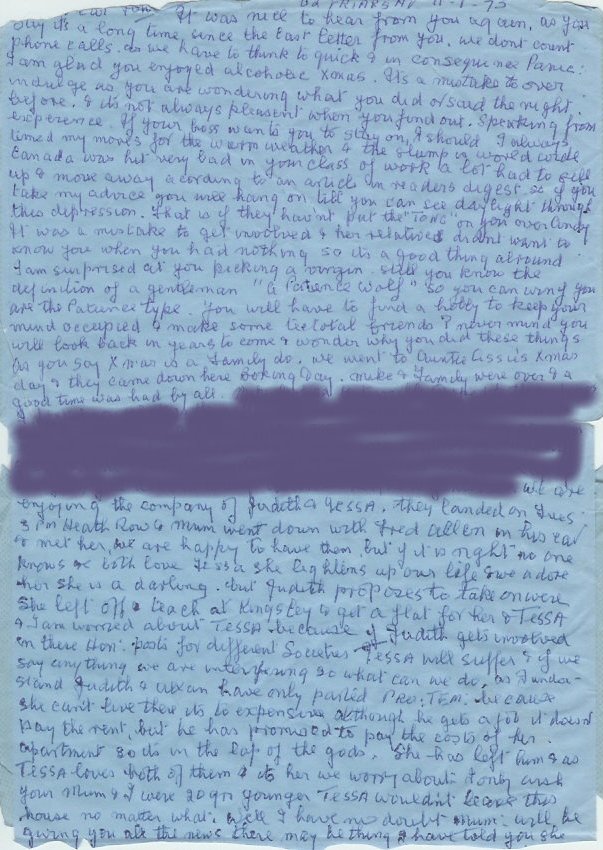 It was nice to hear from you again, as you
say its a long time, since the last letter from you, we dont count
phone calls. as we have to think to quick & in consequence Panic.
I am glad you enjoyed alcoholic Xmas. Its a mistake to over
indulge as you are wondering what you did or said the night
before, & its not always pleasent when you find out. Speaking from
experence. If your boss wants you to stay on, I should I always
timed my moves for the warm weather & the slump is world wide
Canada was hit very bad in your class of work a lot had to sell
up & move away acording to an article in readers digest so if you
take my advice you will hang on till you can see daylight through
this depression. That is if they hav'nt put the on you over Cindy
It was a mistake to get involved & her relatives did'nt want to
know you when you had nothing so its a good thing alround
I am surprised at you picking a virgin still you know the
definition of a gentleman "a Patience Wolf" so you can wing you
are the Patience type. You will have to find a hobby to keep your
mind occupied & make some teetotal friends I never mind you
will look back in years to come & wonder why you did these things
As you say Xmas is a Family do. we went to Auntie Cissies Xmas
day & they came down here Boxing Day. Mike & Family were over & a
good time was had by all.
we are
enjoying the company of Judith & TESSA. they landed on Tues
& Heath Row & Mum went down with Fred Allen in his car
to met her, we are happy to have them, but if it is right no one
knows we both love Tessa she lightens up our life & we adore
her she is a darling. but Judith proposes to take on were
She left off & teach at Kingsley & get a flat for her & TESSA
& I am worried about TESSA. because if Judith gets involved
in these Hon: posts for different Societies TESSA will suffer & if we
say anything we are interfering so what can we do, as I under-
stand Judith & have only parted PRO. TEM: because
she cant live there its to expensive although he gets a job it doesnt
pay the rent, but he has promised to pay the costs of her
apartment so its in the lap of the gods. She has left him & as
TESSA loves both of them & its her we worry about I only wish
your Mum & I were 20 yrs younger TESSA wouldnt leave this
house no matter what. Well I have no doubt Mum: will be
giving you all the news there may be thing I have told you she